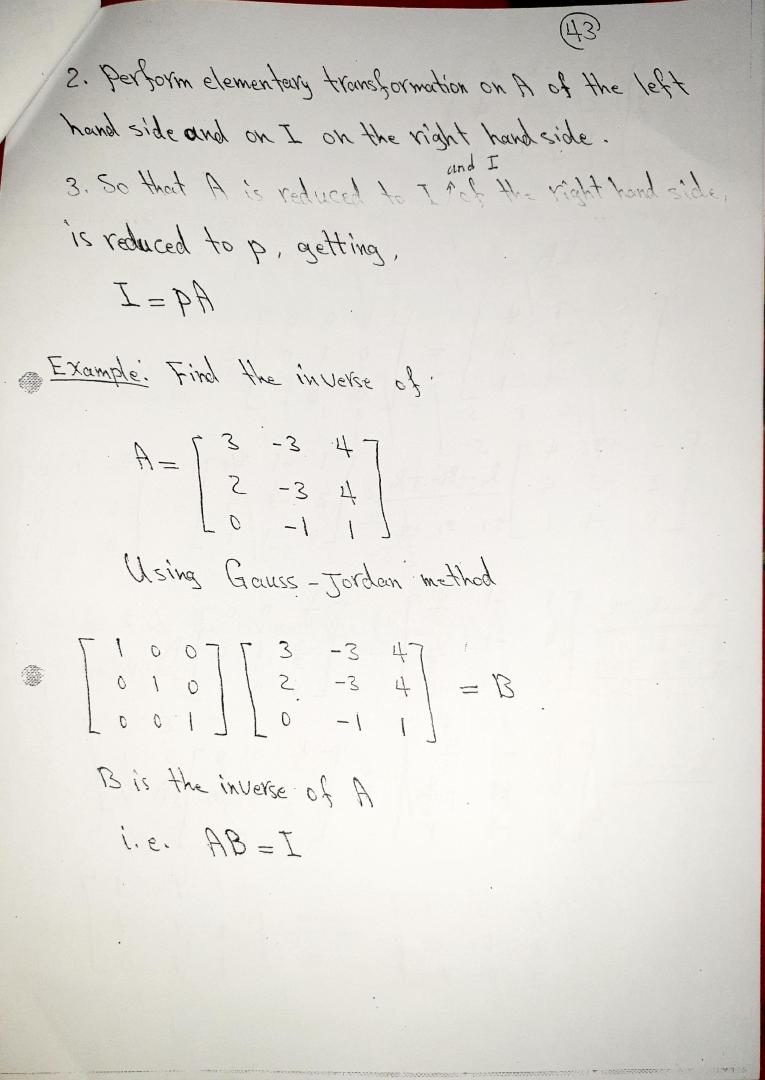 43
2. Perform elementary transformation on A of the left
hand side and on I on the right hand side.
and I
3. So that A is reduced to I ↑ of the right hand side,
is reduced to p, getting,
I = PA
Example: Find the inverse of
A = [ 3 -3 4
2 -3 4
0 -1 1 ]
Using Gauss-Jordan method
[ 1 0 0 ] [ 3 -3 4 ]
0 1 0 2 -3 4 = B
0 0 1 0 -1 1
B is the inverse of A
i.e. AB = I